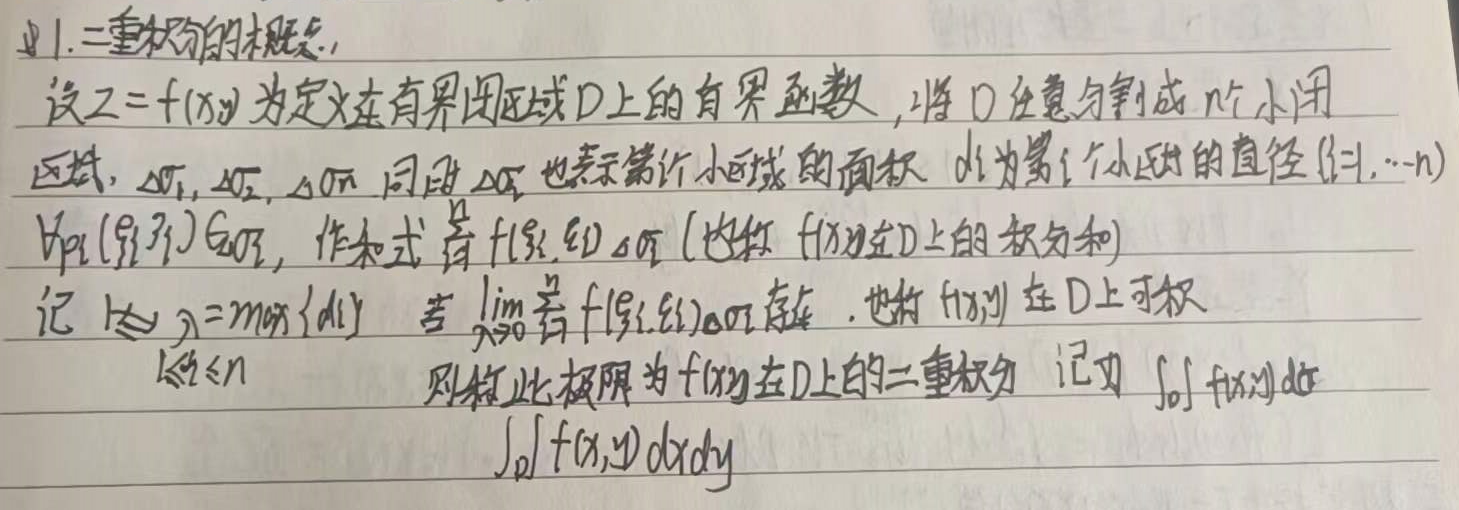 1.二重积分的概念.
设Z=f(x,y)为定义在有界闭区域D上的有界函数,将D任意分割成n个小闭
区域, Δσ₁, Δσ₂, Δσn 同时Δσi也表示第i个小区域的面积 di为第i个小区域的直径(i=1,…n)
∀pi(ξi ξi)∈Δσi, 作和式 Σ(i=1→n) f(ξi,ξi)Δσi (也称f(x,y)在D上的积分和)
记 λ=max{di} 若 lim(λ→0) Σ(i=1→n) f(ξi,ξi)Δσi存在.也称f(x,y)在D上可积
1≤i≤n 则称此极限为f(x,y)在D上的二重积分 记为 ∫D∫ f(x,y)dσ
∫D∫ f(x,y)dxdy